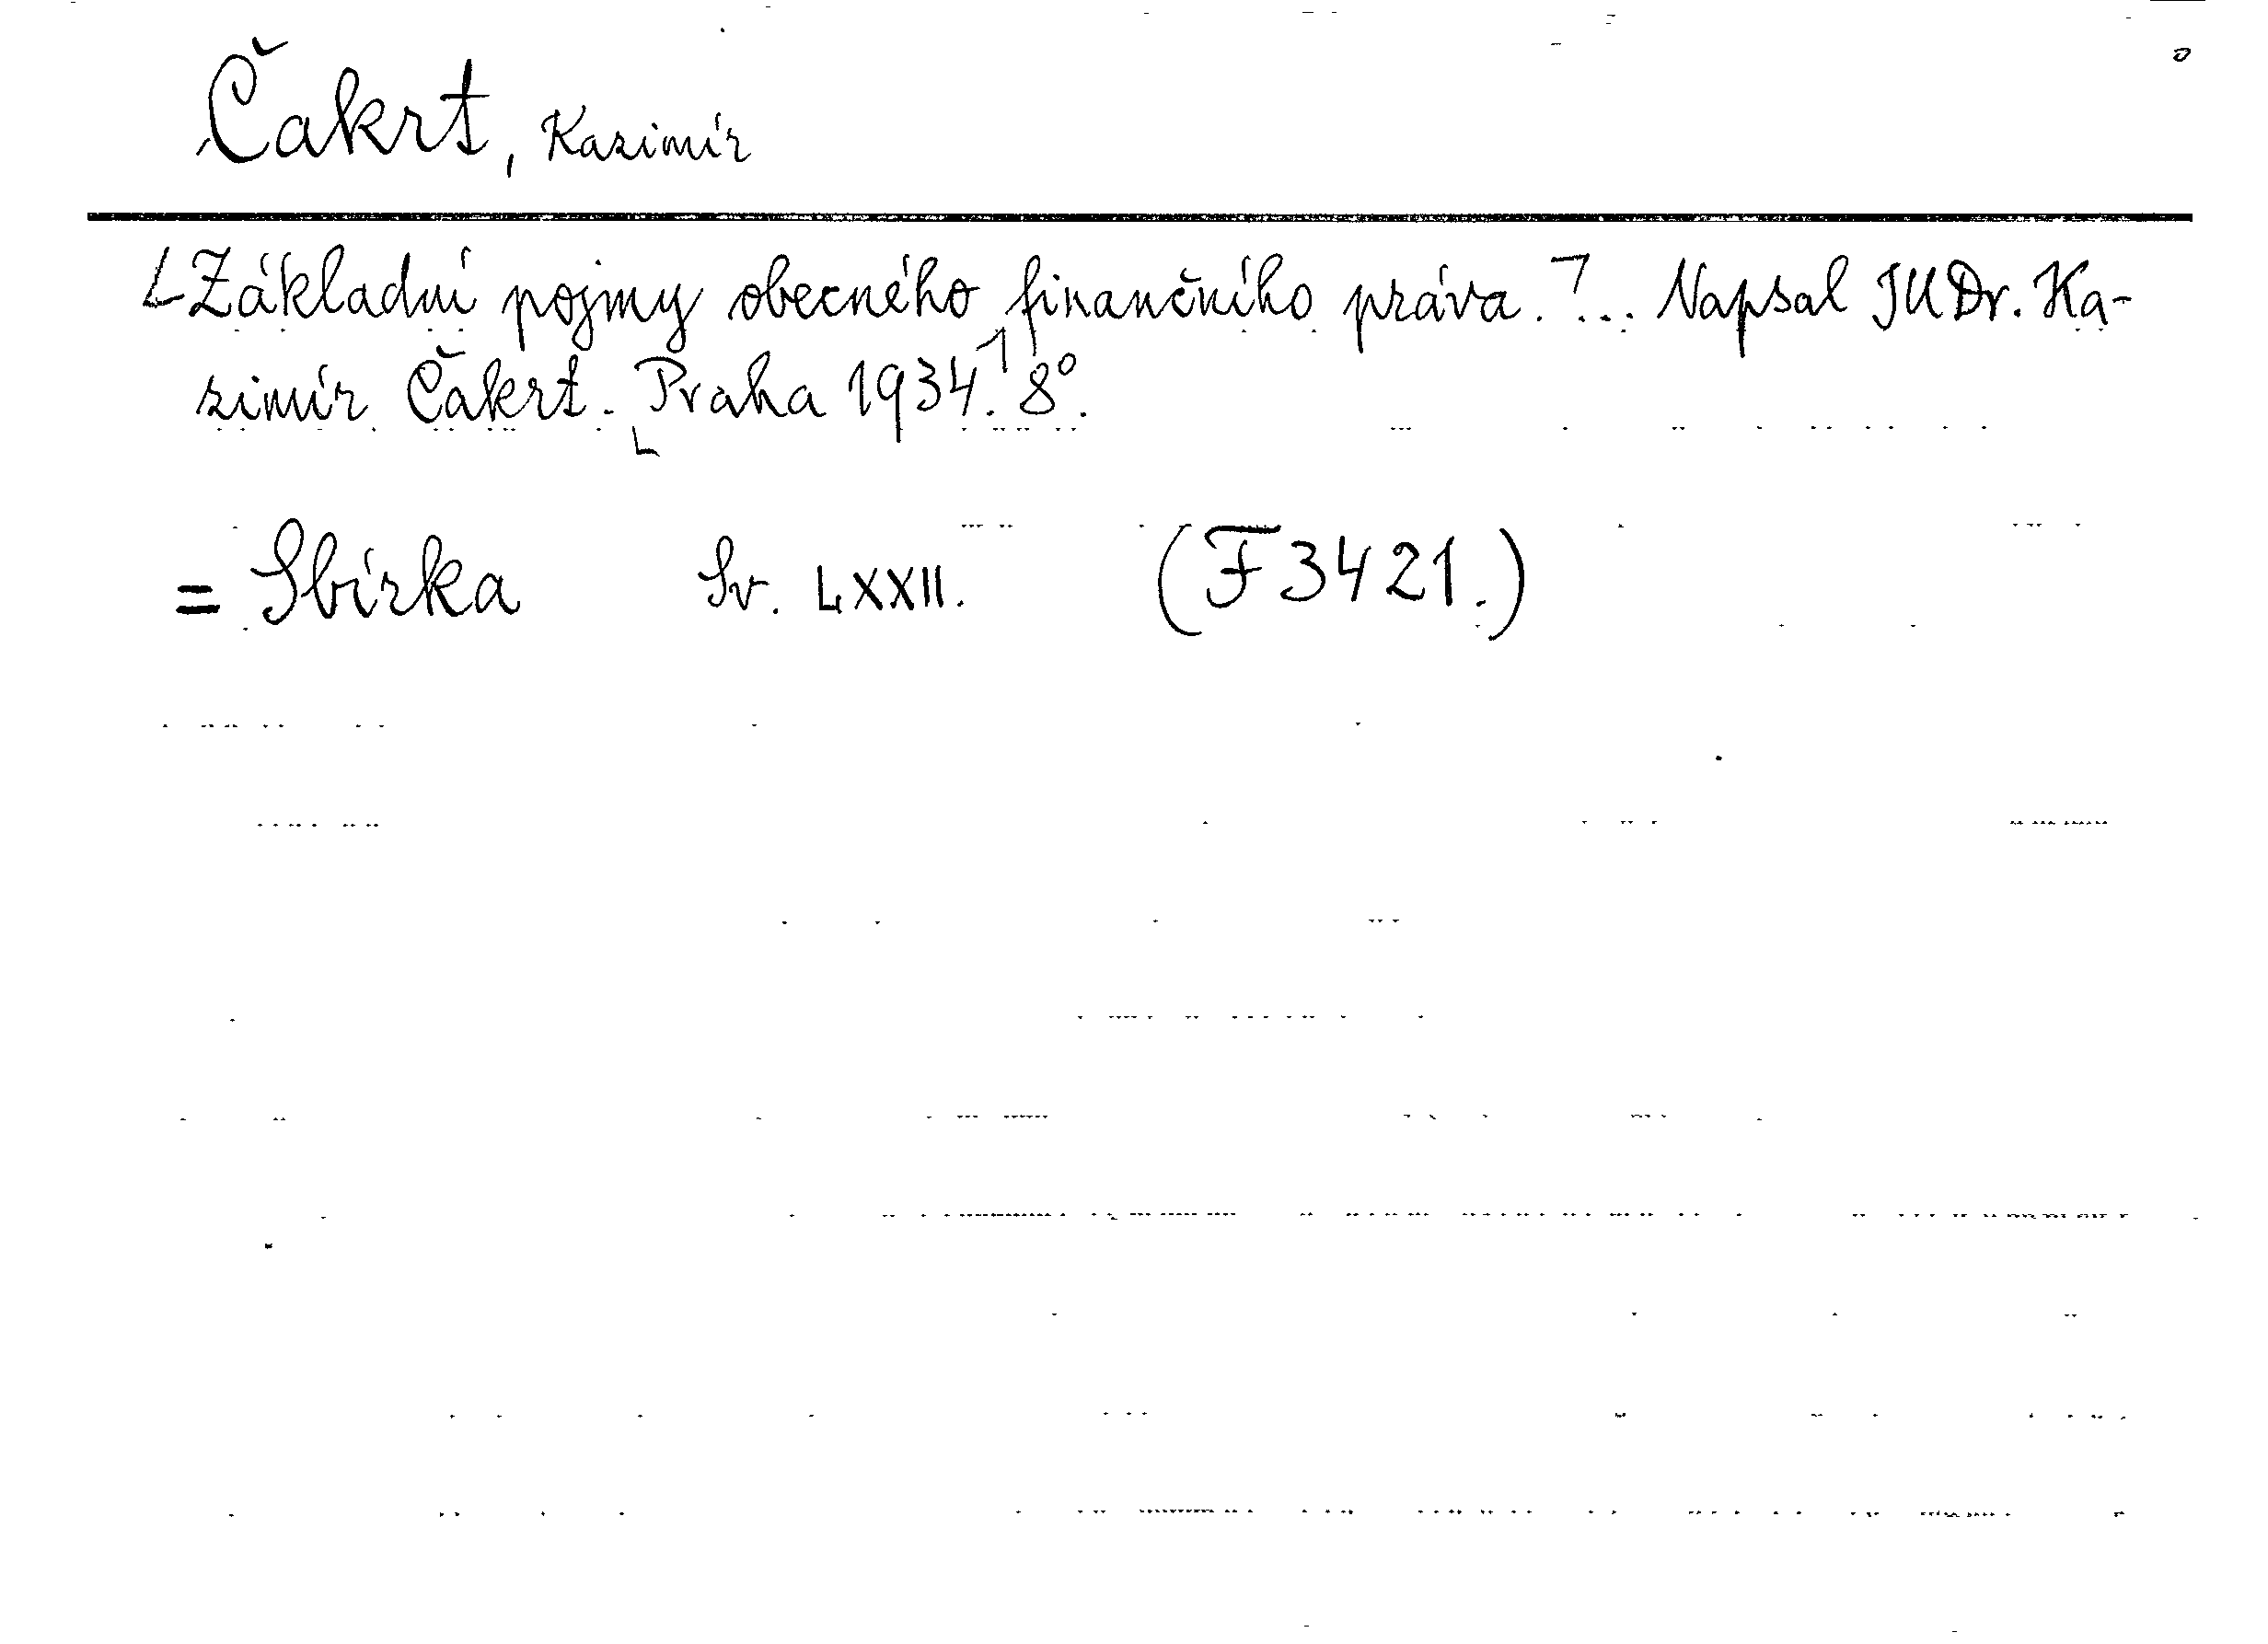 Čakrt, Kazimír
Základní pojmy obecného finančního práva. ... Napsal JUDr. Ka-
zimír Čakrt. Praha 1934. 8°.
= Sbírka Sv. LXXII. (F 3421.)